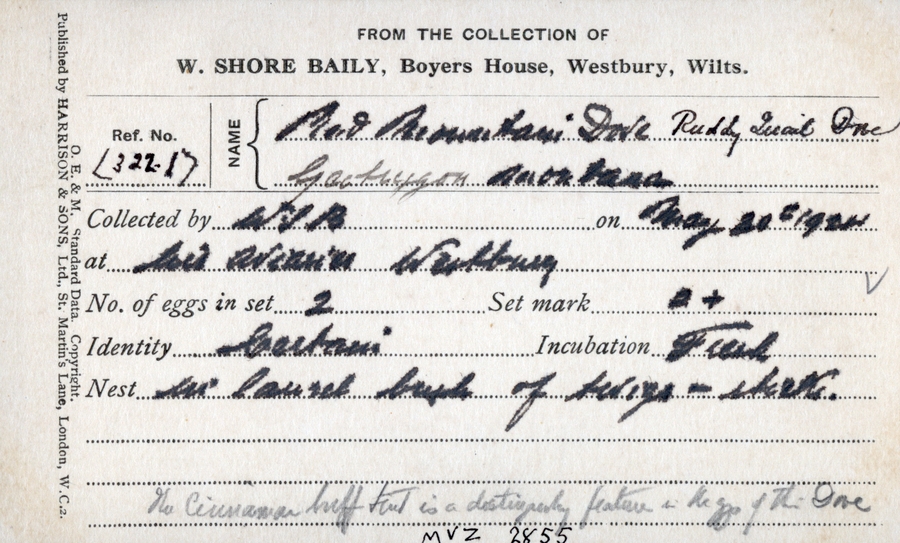 FROM THE COLLECTION OF
W. SHORE BAILY, Boyers House, Westbury, Wilts.
Ref. No.
(322.1)
NAME
Red Mountain Dove Ruddy Quail Dove
Geotrygon montana
Collected by W S B on May 20th 1924
at his aviaries Westbury
No. of eggs in set 2 Set mark 2 +
Identity Certain Incubation Fresh
Nest in laurel bush of twigs –
The Cinnamon buff tint is a feature in the eggs of this Dove
MVZ 2855
Published by HARRISON & SONS, Ltd., St. Martin's Lane, London, W.C.2.
O. E. & M. Standard Data. Copyright.